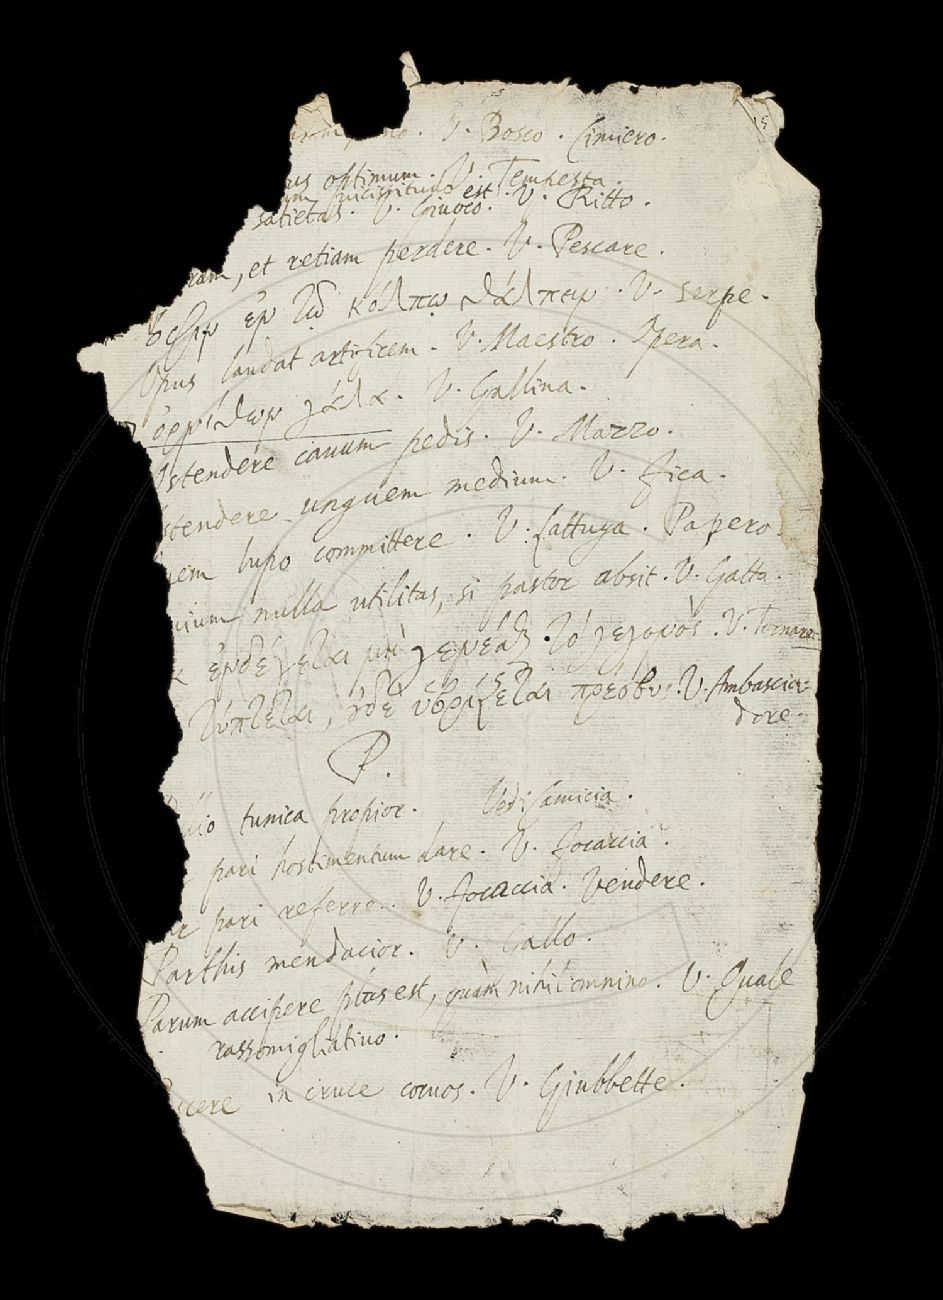 V. Bosco. Cimiero.
us optimum. V. Tempesta.
um vicissitudo est. V. Ritto.
satietas. V. Giuoco.
ram, et retiam perdere. V. Pescare.
ὄφιν ἐν τῷ κόλπῳ θάλπειν. V. Serpe.
Opus laudat artificem. V. Maestro. Opera.
ὀρνίθων γάλα. V. Gallina.
Ostendere cauum pedis. V. Mazzo.
stendere unguem medium. V. Fica.
uem lupo committere. V. Lattuga. Papero.
uium nulla utilitas, si pastor absit. V. Gatta.
κ ἐνδέχεται μὴ γενέσθαι τὸ γεγονός. V. Tornare.
τύπτεται, οὐδὲ ὑβρίζεται πρέσβυς. V. Ambascia=
dore.
P.
llio tunica propior. Vedi Camicia.
pari hostimentum dare. V. Focaccia.
ar pari referre. V. Focaccia. Vendere.
Parthis mendacior. V. Gallo.
Parum accipere plus est, quàm nihil omnino. V. Quale
rassomigliatiuo.
scere in cruce coruos. V. Giubbette.